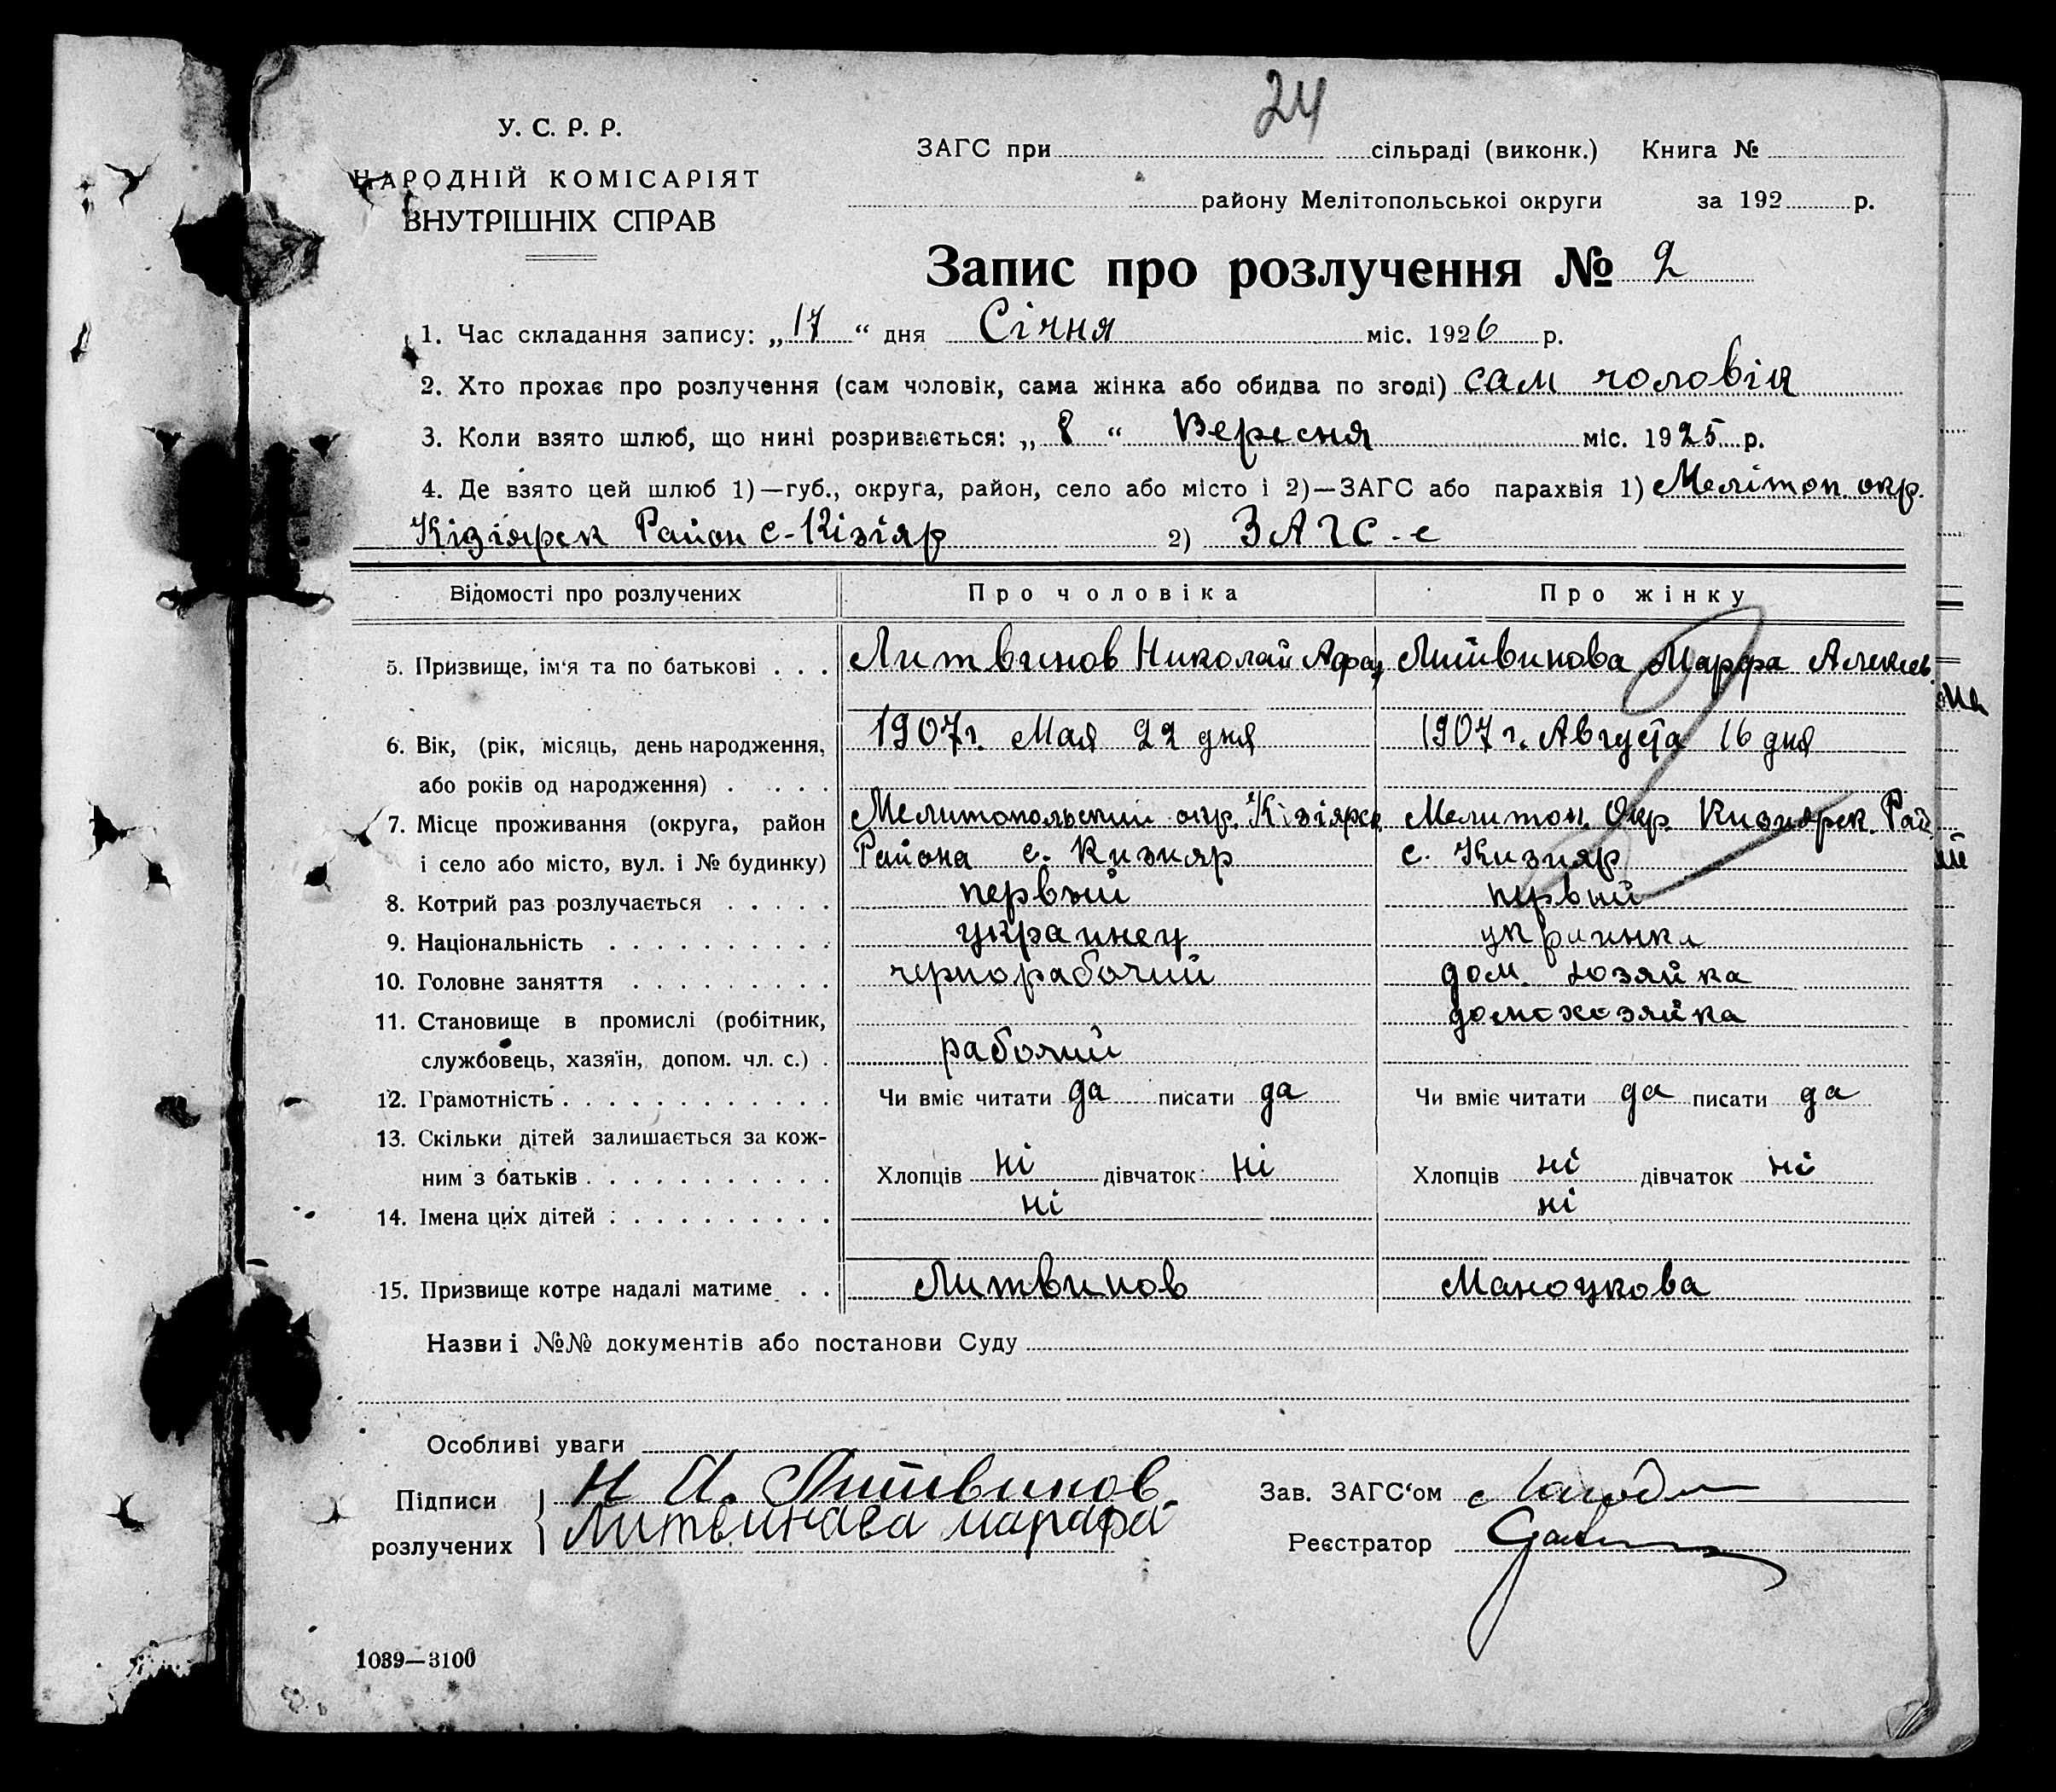 24
У. С. Р. Р.
НАРОДНІЙ КОМІСАРІЯТ
ВНУТРІШНІХ СПРАВ
ЗАГС при сільраді (виконк.) Книга №
району Мелітопольської округи за 192 р.
Запис про розлучення № 2
1. Час складання запису: „17“ дня Січня міс. 1926 р.
2. Хто прохає про розлучення (сам чоловік, сама жінка або обидва по згоді) сам чоловік
3. Коли взято шлюб, що нині розривається: „8“ Вересня міс. 1925 р.
4. Де взято цей шлюб 1)—губ., округа, район, село або місто і 2)—ЗАГС або парахвія 1) Мелітоп. окр.
Кізіярск Район с-Кізіяр 2) ЗАГС-е
Відомості про розлучених Про чоловіка Про жінку
5. Призвище, ім'я та по батькові . . . Литвинов Николай Афан Литвинова Марфа Алексеев.
6. Вік, (рік, місяць, день народження, 1907 г. Мая 22 дня 1907 г. Августа 16 дня
або років од народження) . . . . .
7. Місце проживання (округа, район Мелитопольский окр. Кізіярск Мелитоп. Окр. Кизиярск. Рай.
і село або місто, вул. і № будинку) Района с. Кизияр с. Кизияр
8. Котрий раз розлучається . . . . . первый первый
9. Національність . . . . . . . . . . украинец украинка
10. Головне заняття . . . . . . . . . чернорабочий дом. хозяйка
11. Становище в промислі (робітник, домохозяйка
службовець, хазяїн, допом. чл. с.) . рабочий
12. Грамотність . . . . . . . . . . . . Чи вміє читати да писати да Чи вміє читати да писати да
13. Скільки дітей залишається за кож-
ним з батьків . . . . . . . . . . . Хлопців ні дівчаток ні Хлопців ні дівчаток ні
14. Імена цих дітей . . . . . . . . . . ні ні
15. Призвище котре надалі матиме . . Литвинов Маноцкова
Назви і №№ документів або постанови Суду
Особливі уваги
Підписи Н А. Литвинов Зав. ЗАГС'ом
розлучених Литвинава марафа Реєстратор
1039—3100